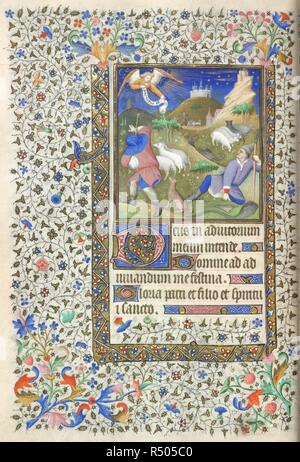 Deus in adiutorium
meum intende.
Domine ad ad
iuuandum me festina.
Gloria patri et filio et spiritu
i sancto.
alamy
Image ID: R505C0
www.alamy.com